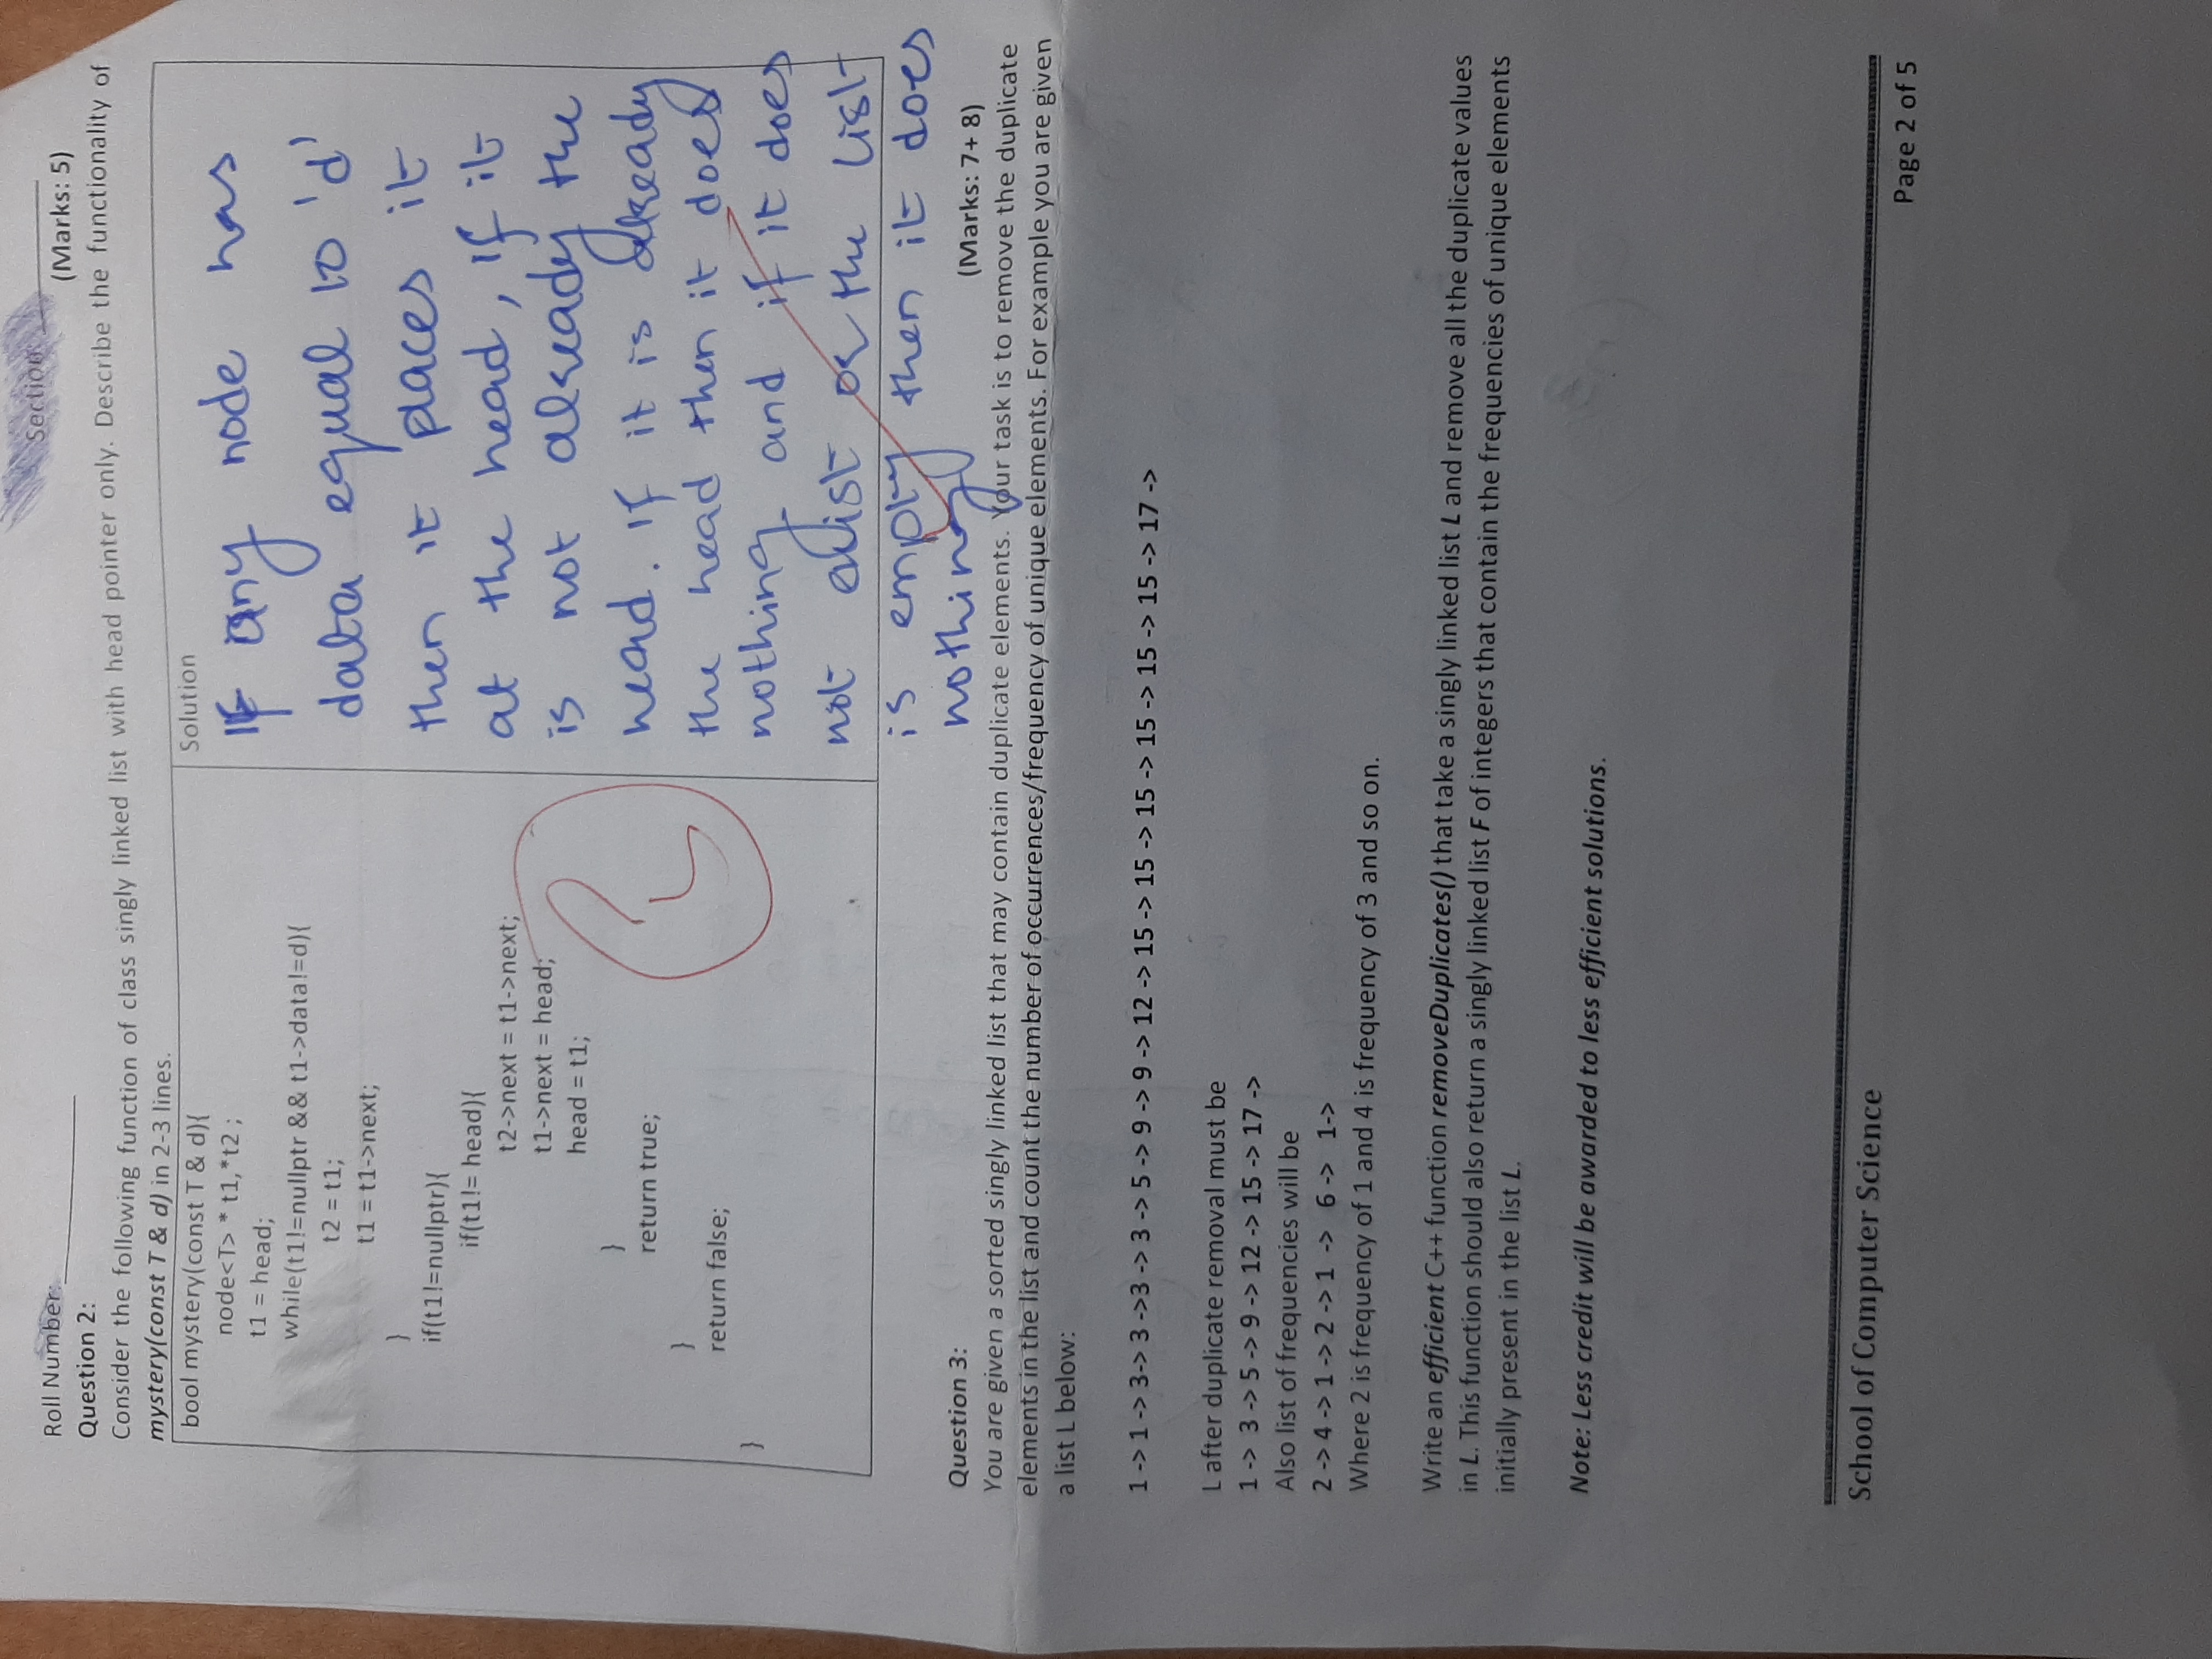 Roll Number:
Section:
(Marks: 5)
Question 2:
Consider the following function of class singly linked list with head pointer only. Describe the functionality of
mystery(const T & d) in 2-3 lines.
bool mystery(const T & d){
node<T> * t1,*t2 ;
t1 = head;
while(t1!=nullptr && t1->data!=d){
t2 = t1;
t1 = t1->next;
}
if(t1!=nullptr){
if(t1!= head){
t2->next = t1->next;
t1->next = head;
head = t1;
}
return true;
}
return false;
}
Solution
If any node has
data equal to 'd'
then it places it
at the head, if it
is not already the
head. If it is already
the head then it does
nothing and if it does
not exist or the list
is empty then it does
nothing
Question 3:
(Marks: 7+ 8)
You are given a sorted singly linked list that may contain duplicate elements. Your task is to remove the duplicate
elements in the list and count the number of occurrences/frequency of unique elements. For example you are given
a list L below:
1 -> 1 -> 3-> 3 ->3 -> 3 -> 5 -> 9 -> 9 -> 12 -> 15 -> 15 -> 15 -> 15 -> 15 -> 15 -> 17 ->
L after duplicate removal must be
1 -> 3 -> 5 -> 9 -> 12 -> 15 -> 17 ->
Also list of frequencies will be
2 -> 4 -> 1 -> 2 -> 1 -> 6 -> 1->
Where 2 is frequency of 1 and 4 is frequency of 3 and so on.
Write an efficient C++ function removeDuplicates() that take a singly linked list L and remove all the duplicate values
in L. This function should also return a singly linked list F of integers that contain the frequencies of unique elements
initially present in the list L.
Note: Less credit will be awarded to less efficient solutions.
School of Computer Science
Page 2 of 5